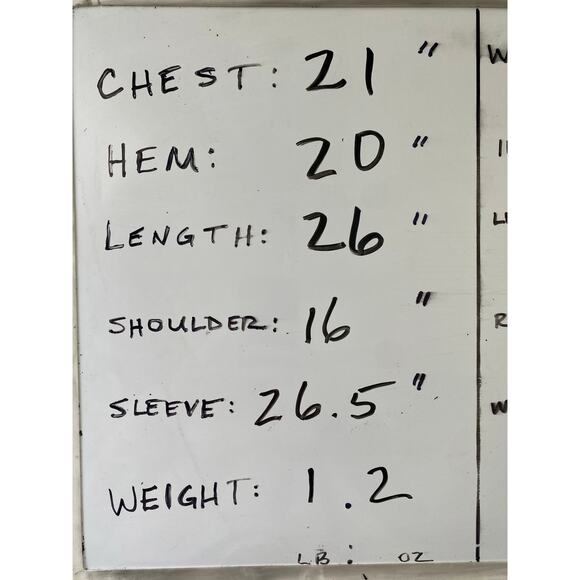 CHEST: 21 "
HEM: 20 "
LENGTH: 26 "
SHOULDER: 16 "
SLEEVE: 26.5 "
WEIGHT: 1.2
LB : OZ